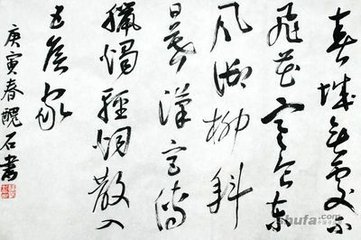 春城無處不
飛花寒食東
風御柳斜
日暮漢宮傳
蠟燭輕烟散入
五侯家
庚寅春醜石書
shufa.com